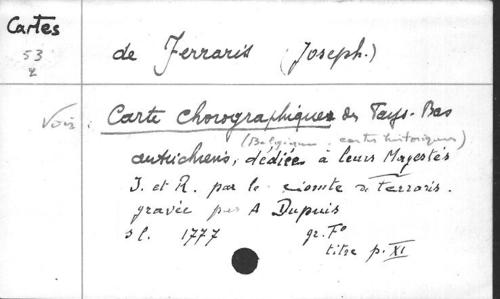 Cartes
53
2
de Ferraris (Joseph.)
Voir : Carte chorographique des Pays-Bas
(Belgique : cartes historiques)
autrichiens, dédiée à leurs Majestés
I. et R. par le comte de Ferraris.
gravée par A Dupuis
s l. 1777 gr. F°
titre p. XI